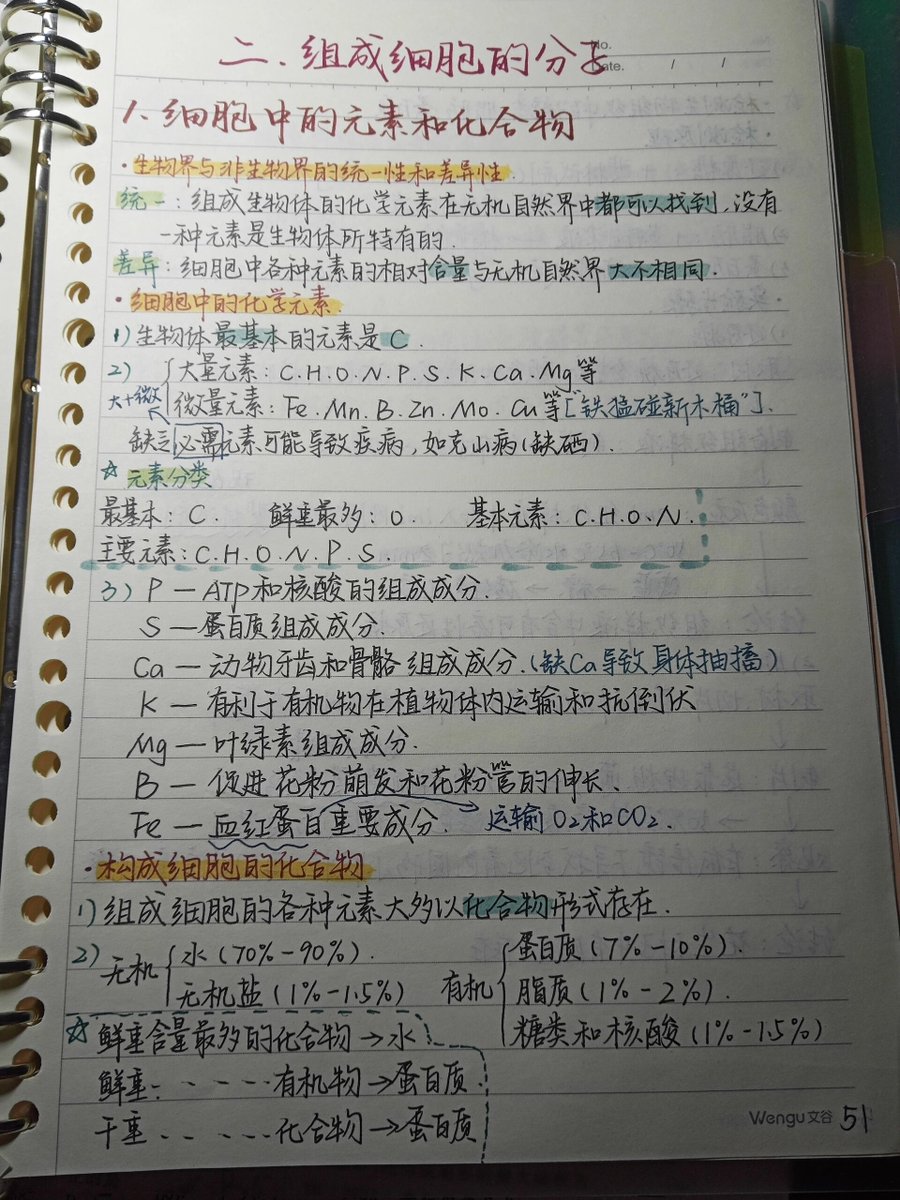 二.组成细胞的分子
No.
Date. / /
1.细胞中的元素和化合物
·生物界与非生物界的统一性和差异性
统一:组成生物体的化学元素在无机自然界中都可以找到,没有
一种元素是生物体所特有的.
差异:细胞中各种元素的相对含量与无机自然界大不相同.
·细胞中的化学元素
1)生物体最基本的元素是C.
2) 大量元素:C.H.O.N.P.S.K.Ca.Mg等
大+微 微量元素:Fe.Mn.B.Zn.Mo.Cu等["铁猛碰新木桶"].
缺乏必需元素可能导致疾病,如克山病(缺硒).
☆元素分类
最基本:C. 鲜重最多:O. 基本元素:C.H.O.N.
主要元素:C.H.O.N.P.S
3) P—ATP和核酸的组成成分.
S—蛋白质组成成分.
Ca—动物牙齿和骨骼组成成分.(缺Ca导致身体抽搐)
K—有利于有机物在植物体内运输和抗倒伏
Mg—叶绿素组成成分.
B—促进花粉萌发和花粉管的伸长.
Fe—血红蛋白重要成分. 运输O2和CO2.
·构成细胞的化合物
1)组成细胞的各种元素大多以化合物形式存在.
2)无机 水(70%-90%).
无机盐(1%-1.5%)
有机 蛋白质(7%-10%).
脂质(1%-2%).
糖类和核酸(1%-1.5%)
☆鲜重含量最多的化合物→水
鲜重- - - - -有机物→蛋白质.
干重- - - - -化合物→蛋白质
Wengu文谷 51